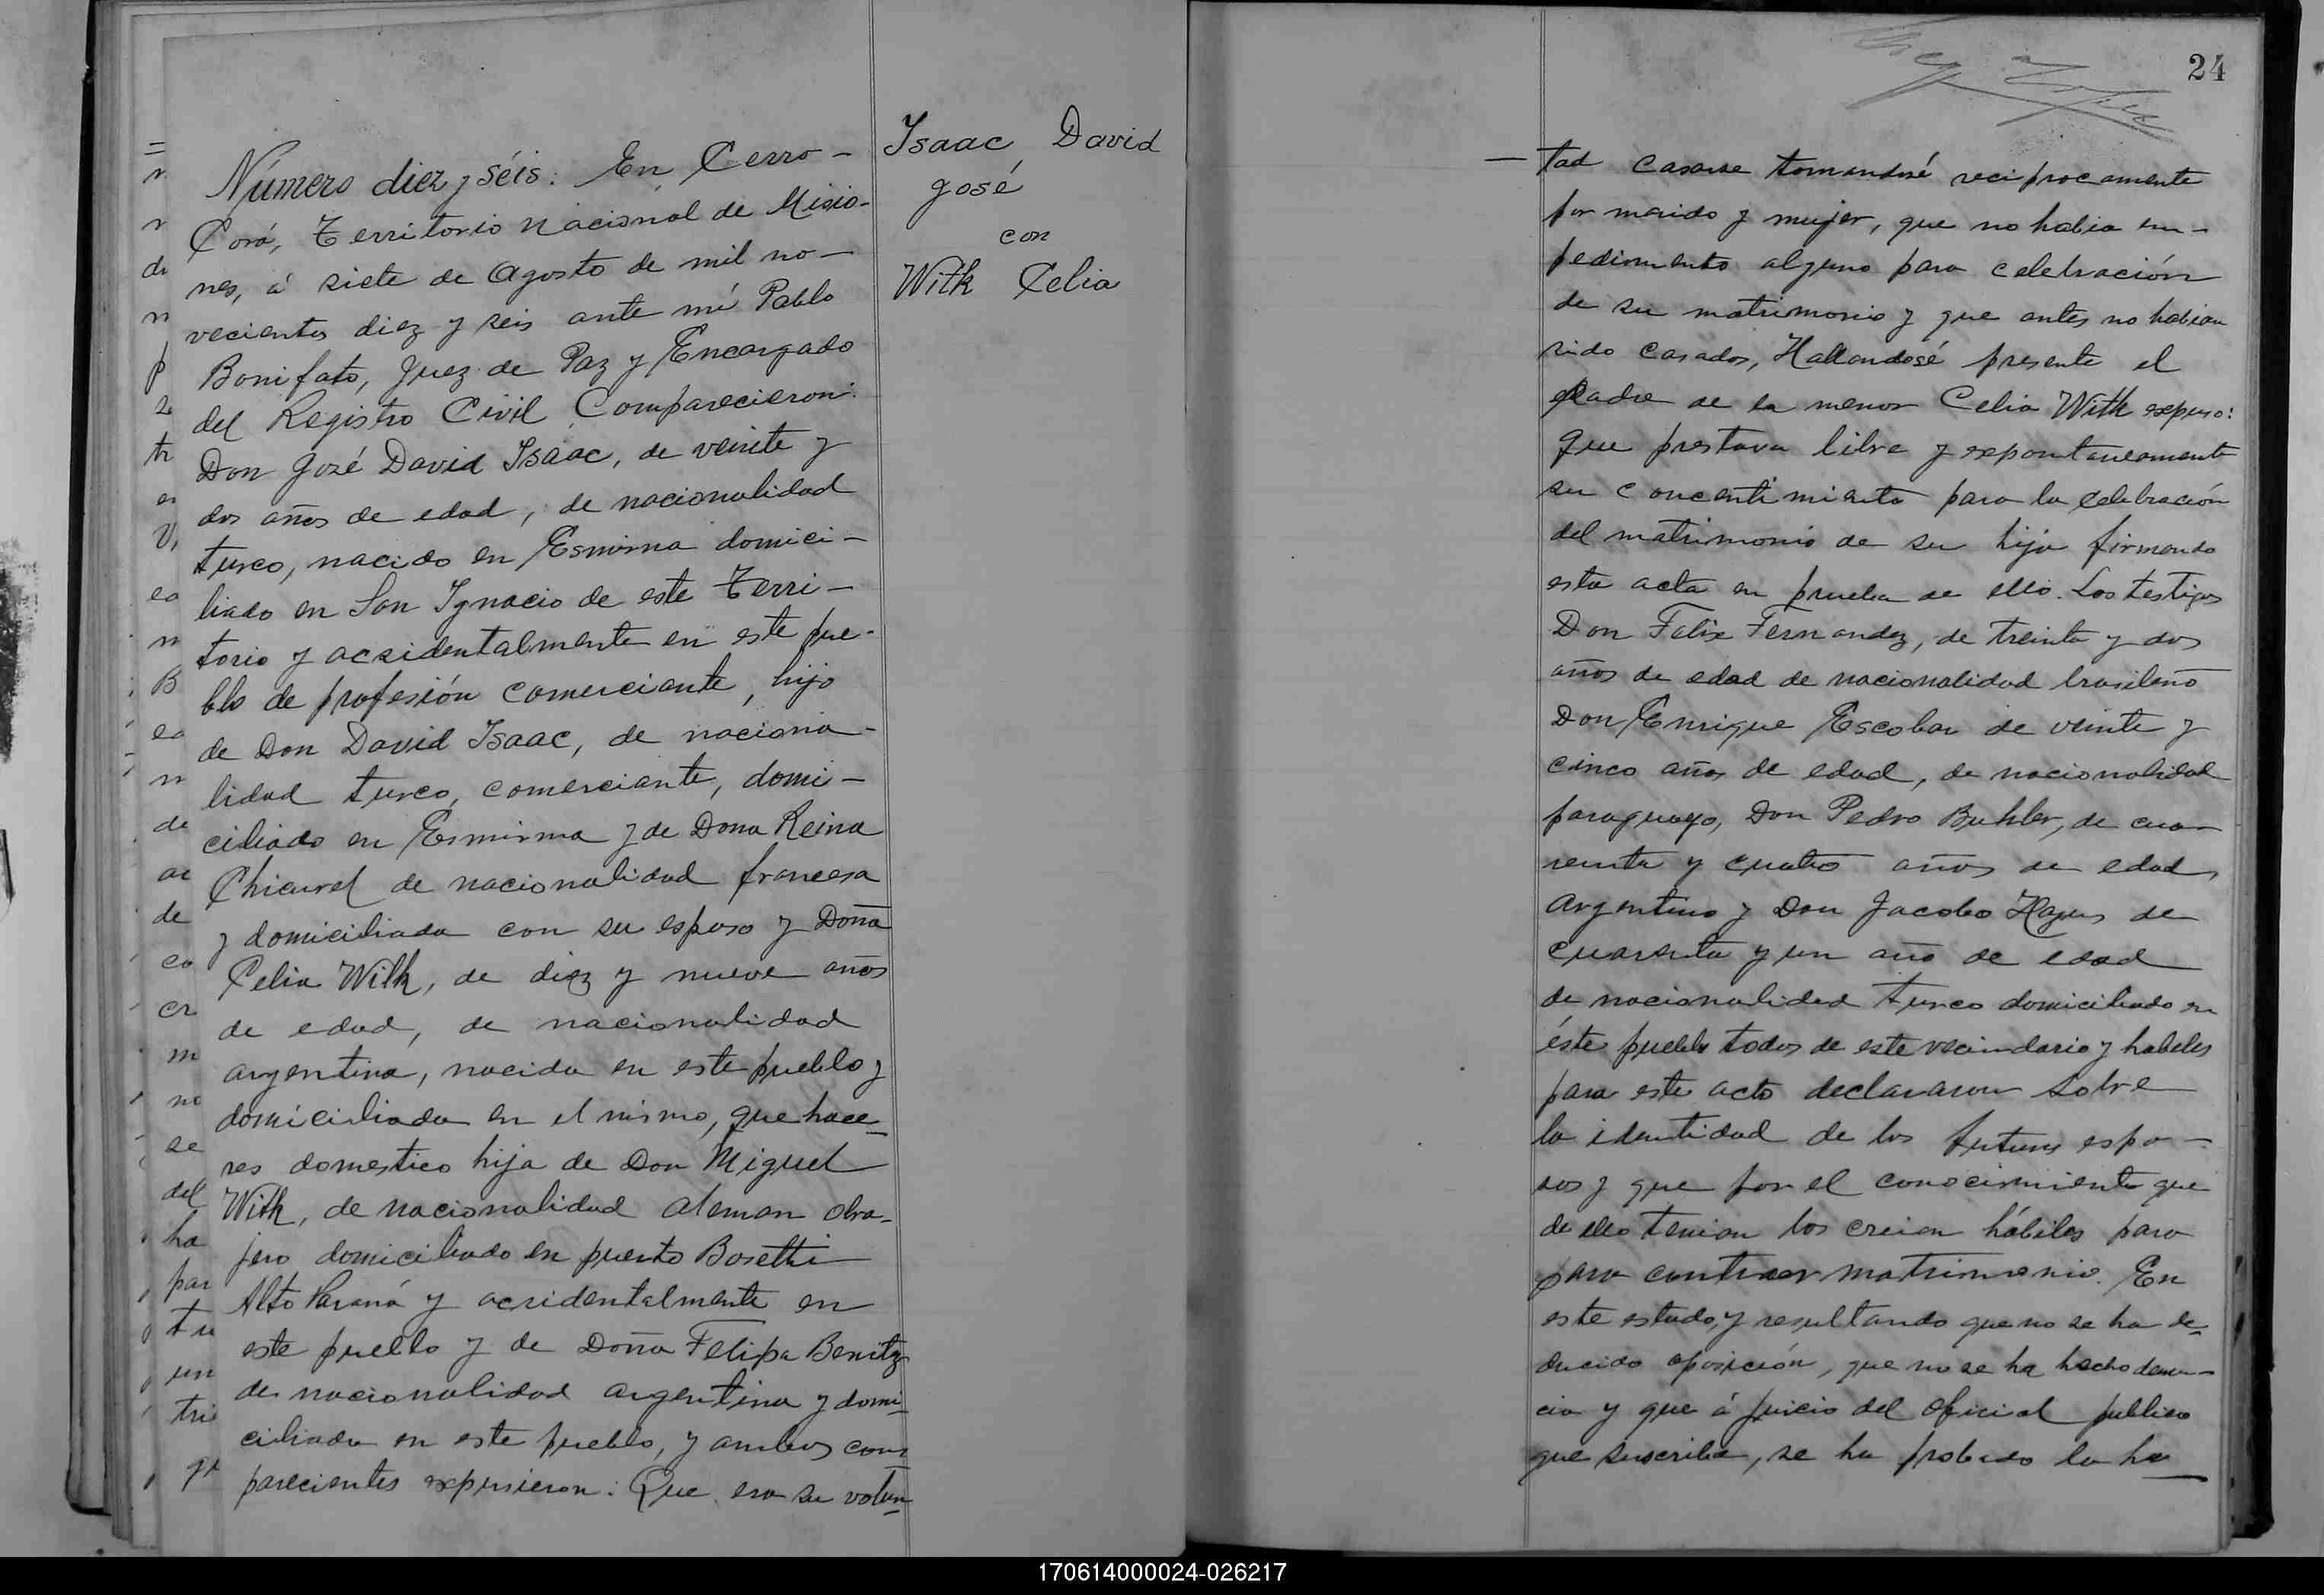 Número diez y séis: En Cerro-
Corá, Territorio Nacional de Misio-
nes, á siete de Agosto de mil no-
vecientos diez y seis ante mí Pablo
Bonifato, Juez de Paz y Encargado
del Registro Civil Comparecieron:
Don José David Isaac, de veinte y
dos años de edad, de nacionalidad
turco, nacido en Esmirna domici-
liado en San Ignacio de este Terri-
torio y acsidentalmente en este pue-
blo de profesión comerciante, hijo
de Don David Isaac, de naciona-
lidad turco, comerciante, domi-
ciliado en Esmirna y de Dona Reina
Chicurel de nacionalidad francesa
y domiciliada con su esposo y Doña
Celia With, de diez y nueve años
de edad, de nacionalidad
argentina, nacida en este pueblo y
domiciliada en el mismo, que hace-
res domestico hija de Don Miguel
With, de nacionalidad Aleman obra-
jero domiciliado en puerto Bosetti
Alto Paraná y acsidentalmente en
este pueblo y de Doña Felipa Benitz
de nacionalidad argentina y domi-
ciliada en este pueblo, y ambos com
parecientes expusieron: Que era su volun-
Isaac David
José
con
With Celia
24
tad casarse tomandosé reciprocamente
por marido y mujer, que no habia im-
pedimento alguno para celebración
de su matrimonio y que antes no habian
sido casados, Hallandosé presente el
padre de la menor Celia With expuso:
Que prestava libre y expontaneamente
su concentimiento para la celebración
del matrimonio de su hija firmando
esta acta en prueba de ello. Los testigos
Don Felix Fernandez, de treinta y dos
años de edad de nacionalidad brasileño
Don Enrique Escobar de veinte y
cinco años de edad, de nacionalidad
paraguayo, Don Pedro Buhler, de cua-
renta y cuatro años de edad,
Argentino y Don Jacobo Hazus de
cuarenta y un año de edad
de nacionalidad turco domiciliado en
éste pueblo todos de este vecindario y habeles
para este acto declararon sobre
la identidad de los futuros espo-
sos y que por el conocimiento que
de ello tenian los creian hábiles para
para contraer matrimonio. En
este estado, y resultando que no se ha de-
ducido oposición, que no se ha hecho denun-
cia y que á juicio del Oficial publico
que suscribe, se ha probado la ha
170614000024-026217